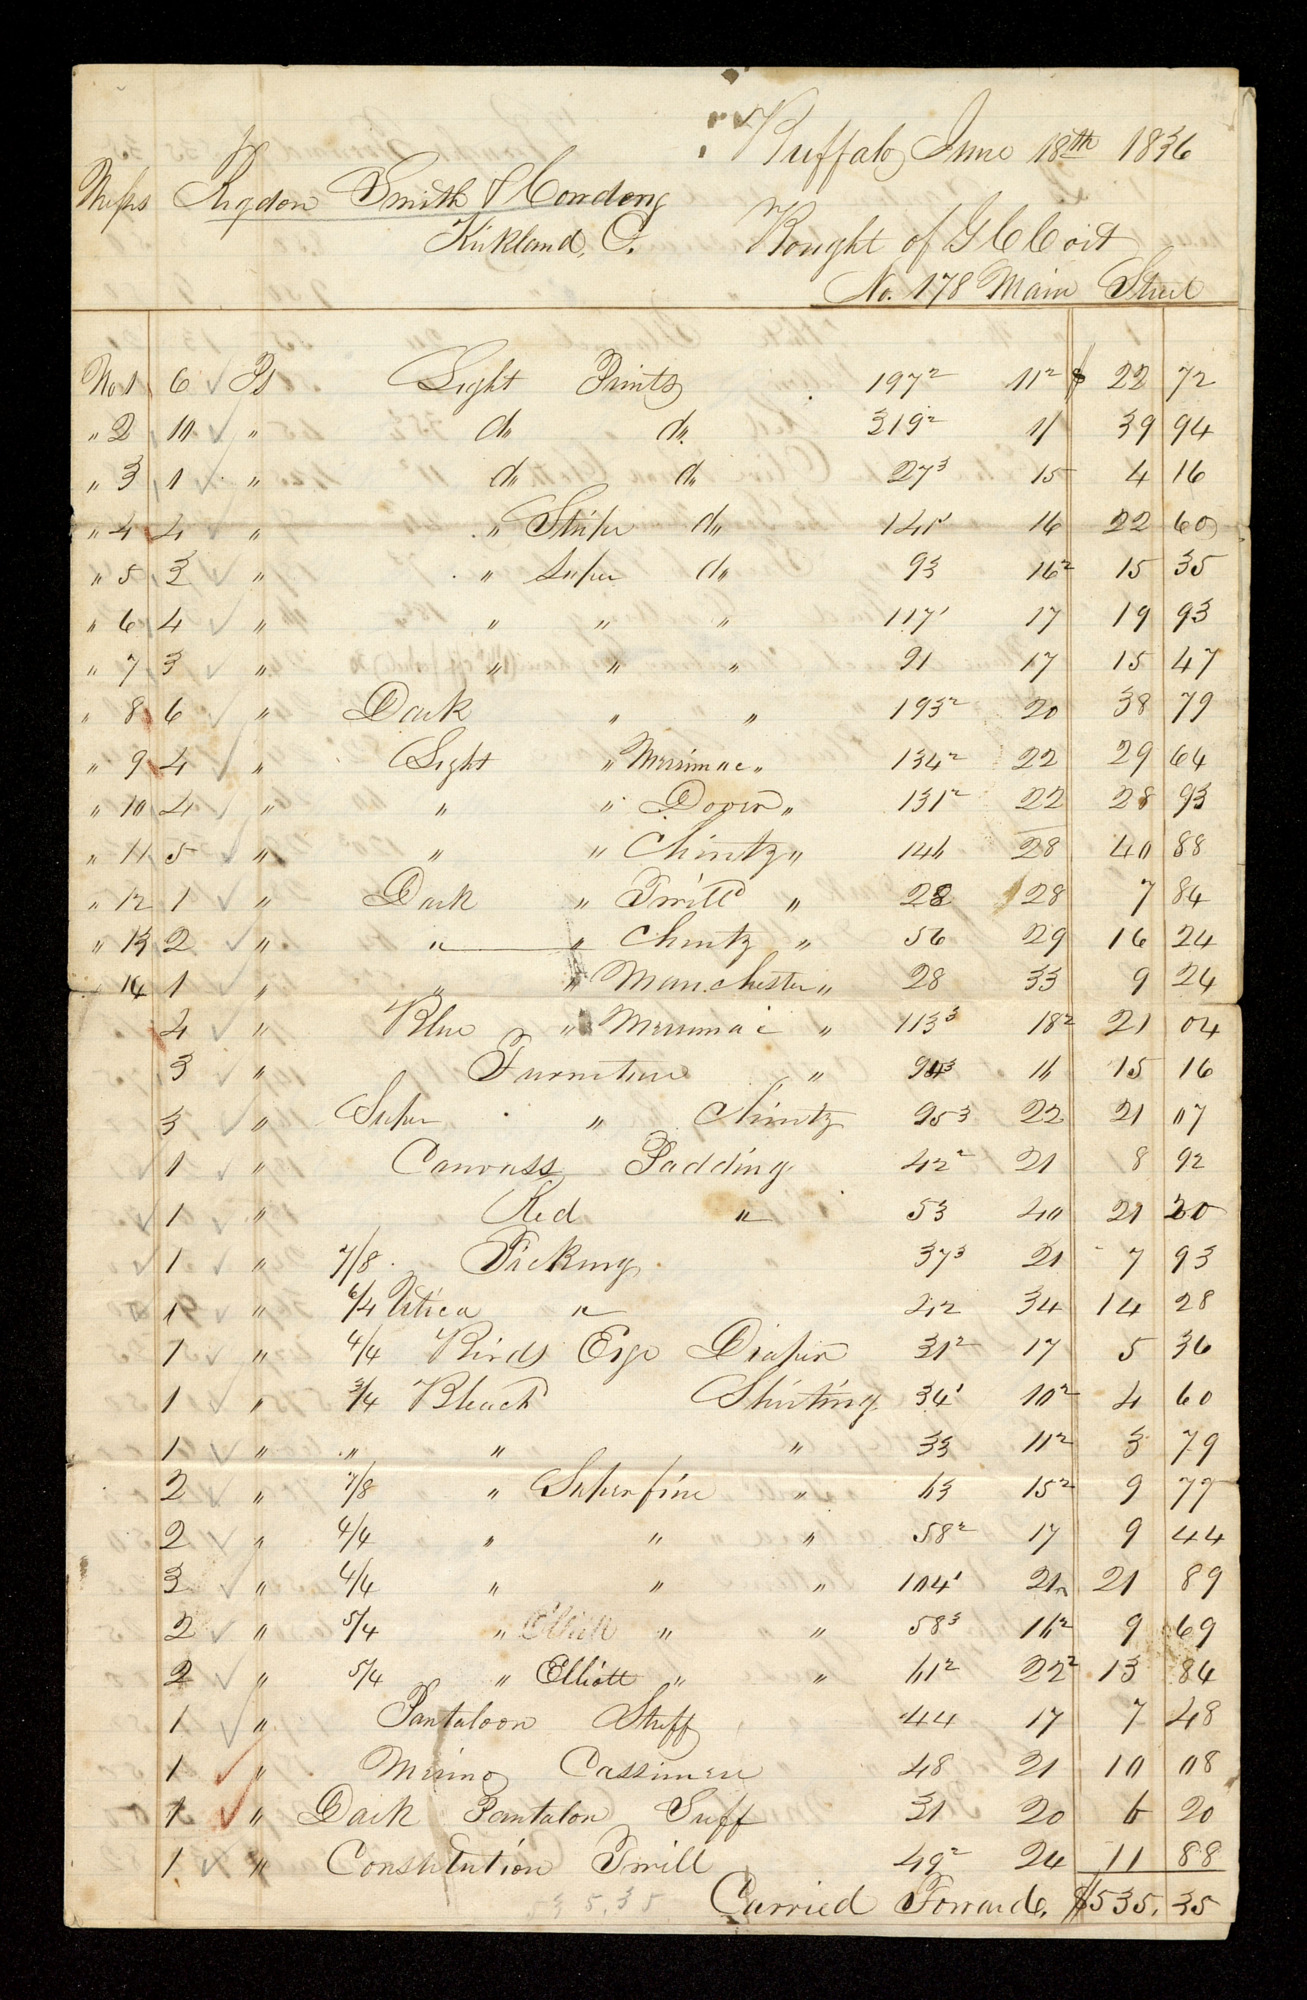 Buffalo June 18th 1836
Messrs Rigdon Smith & Cowdery
Kirkland, O. Bought of G C Coit
No. 178 Main Street
No 1 6 Ps Light Prints 197² 11² $ 22 72
" 2 10 " do do. 319² 1/ 39 94
" 3 1 " do do 27³ 15 4 16
" 4 4 " " Stripe do 141¹ 16 22 60
" 5 3 " " Super do 93 16² 15 35
" 6 4 " " " " 117¹ 17 19 93
" 7 3 " " " " 91 17 15 47
" 8 6 " Dark " " 193² 20 38 79
" 9 4 " Light " Merrimac " 134² 22 29 64
" 10 4 " " " Dover " 131² 22 28 93
" 11 5 " " " Chintz " 146 28 40 88
" 12 1 " Dark " Twill'd " 28 28 7 84
" 13 2 " " " Chintz " 56 29 16 24
" 14 1 " " " Manchester " 28 33 9 24
4 " Blue " Merrimac " 113³ 18² 21 04
3 " Furniture " 94³ 16 15 16
3 " Super " Chintz 95³ 22 21 07
1 " Canvass Padding 42² 21 8 92
1 " Red " 53 40 21 20
1 " 7/8 Ticking 37³ 21 7 93
1 " 6/4 Utica " 42 34 14 28
1 " 4/4 Birds Eye Diaper 31² 17 5 36
1 " 3/4 Bleach'd Shirting 34¹ 10² 4 60
1 " " " " 33 11² 3 79
2 " 7/8 " Superfine " 63 15² 9 77
2 " 4/4 " " " 58² 17 9 44
3 " 4/4 " " " 104¹ 21 21 89
2 " 5/4 " " " 58³ 16² 9 69
2 " 5/4 " Elliott " " 61² 22² 13 84
1 " Pantaloon Stuff 44 17 7 48
1 " Merino Cassimere 48 21 10 08
1 " Dark Pantalon Suff 31 20 6 20
1 " Constitution Twill 49² 24 11 88
535.35 Carried Forward. $535.35